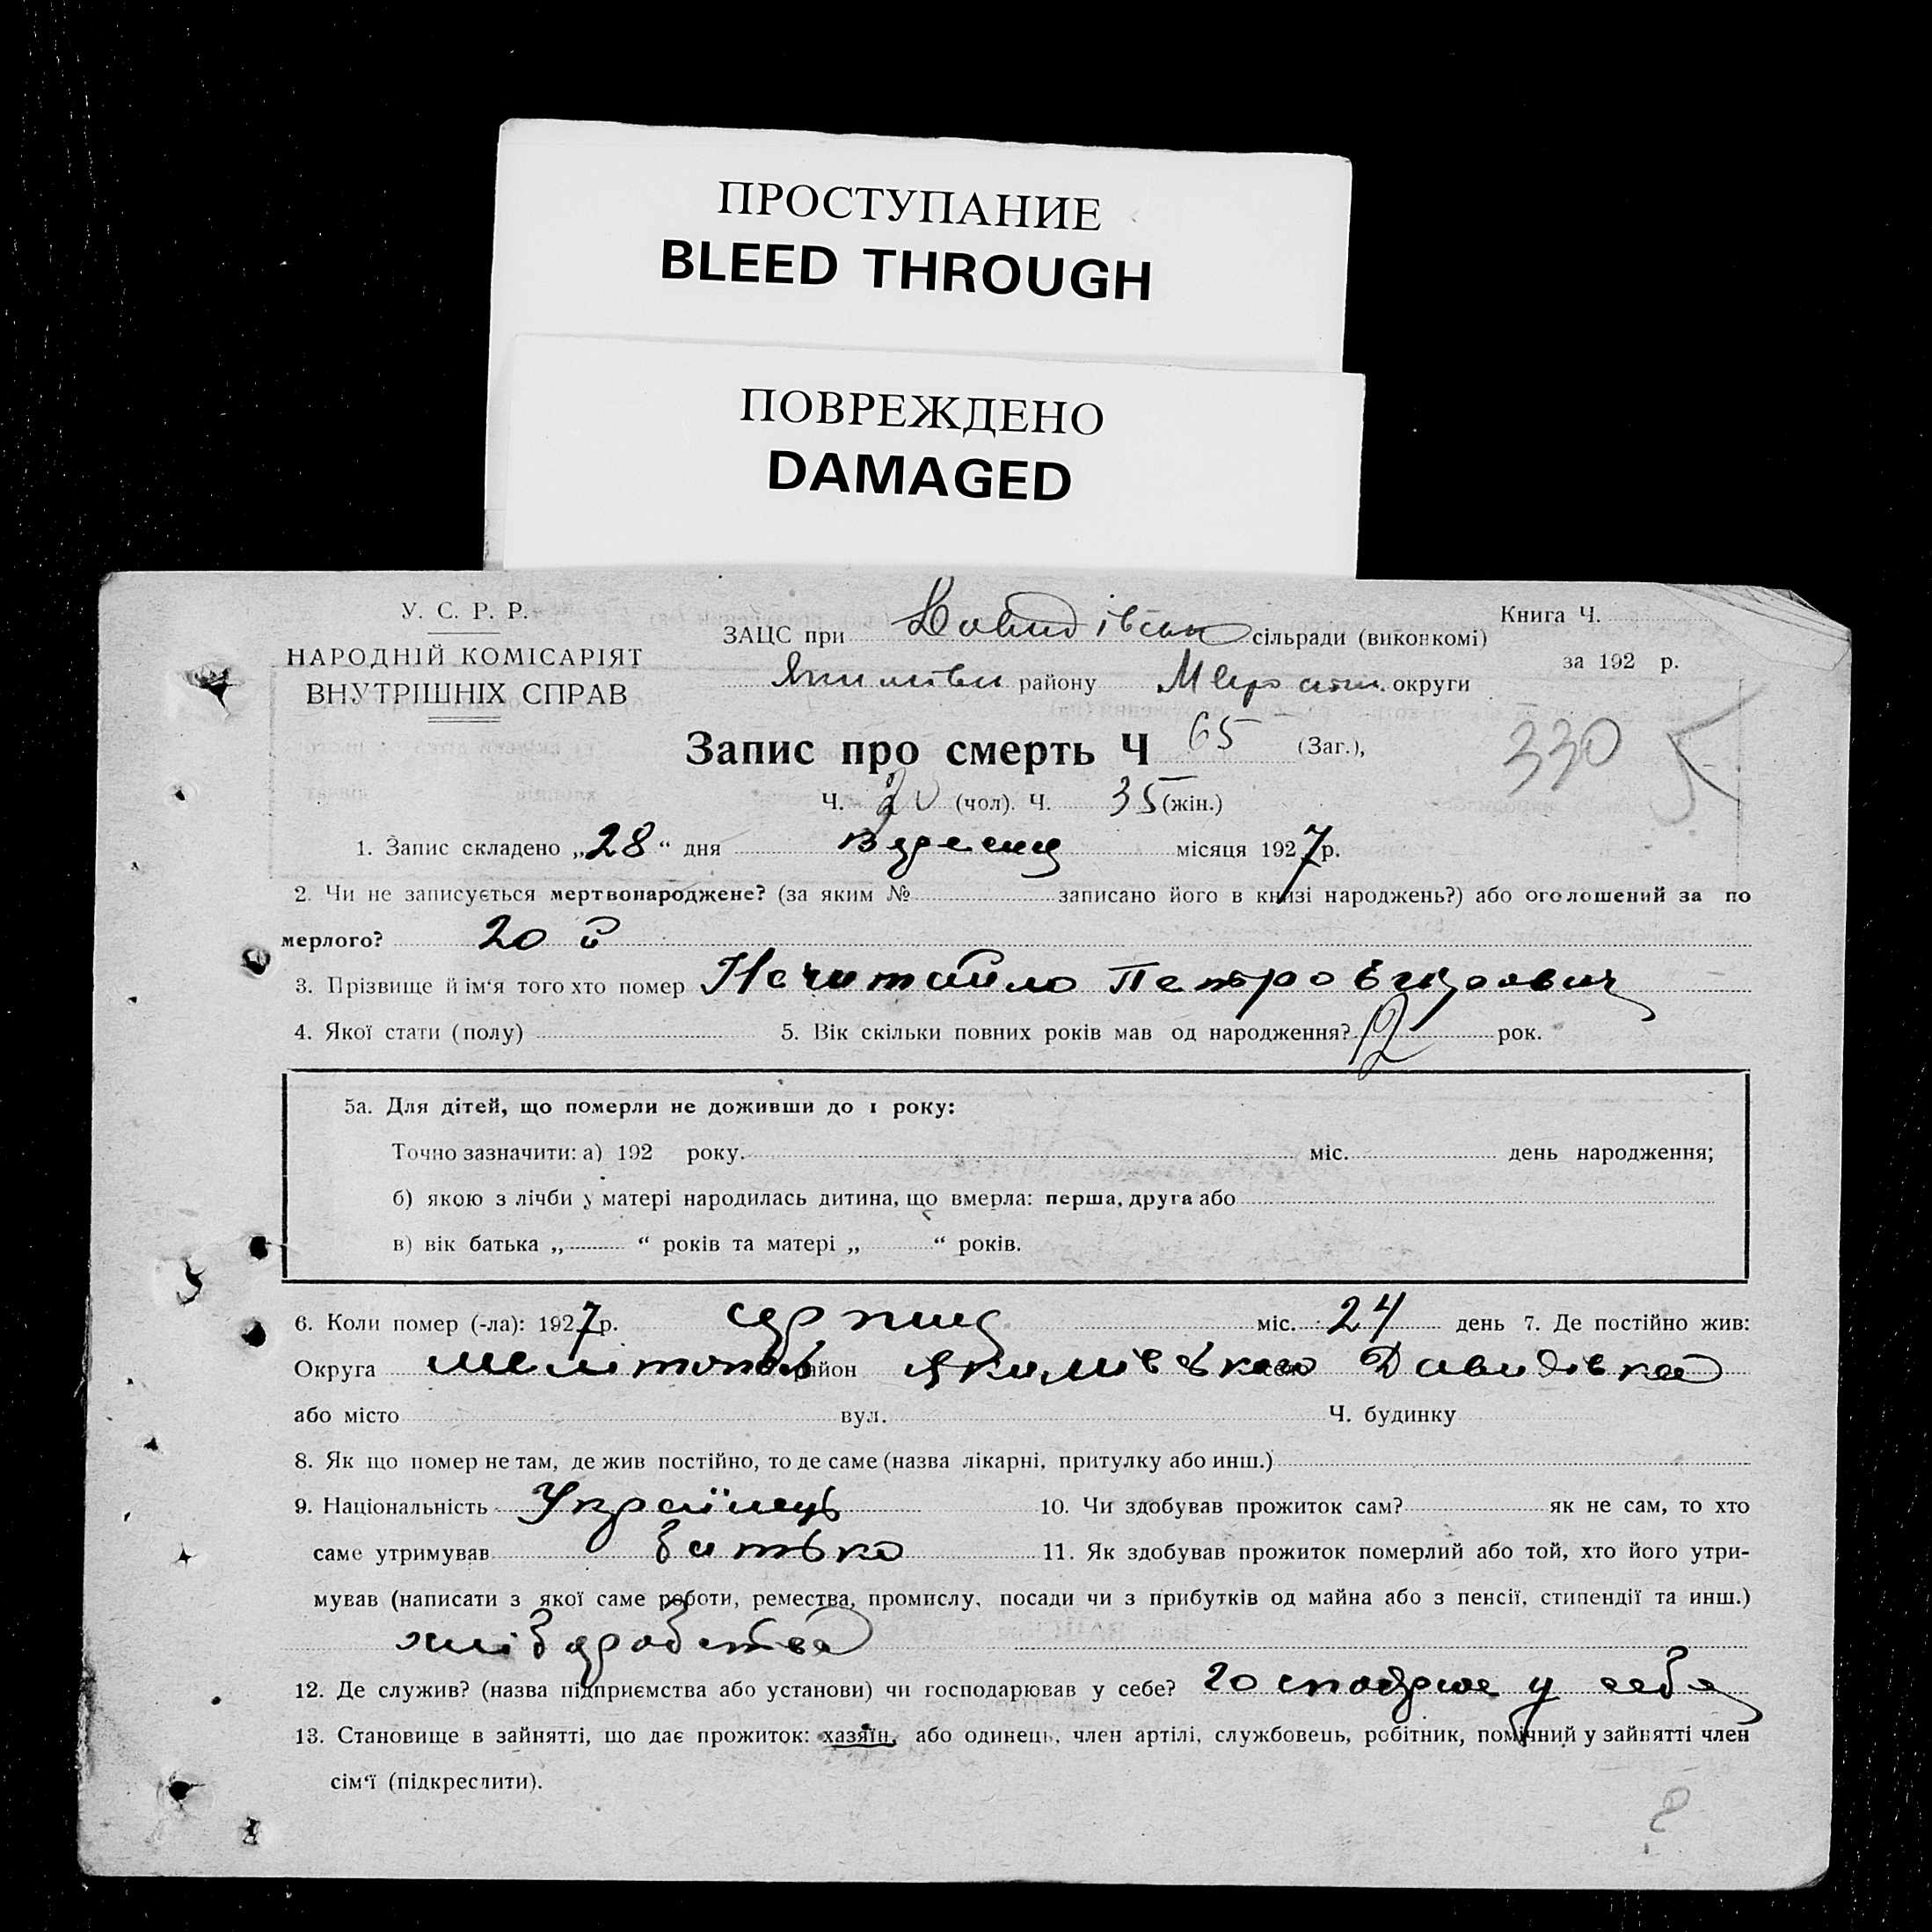 ПРОСТУПАНИЕ
BLEED THROUGH
ПОВРЕЖДЕНО
DAMAGED
У. С. Р. Р.
НАРОДНІЙ КОМІСАРІЯТ
ВНУТРІШНІХ СПРАВ
ЗАЦС при Давидівськ сільради (виконкомі)
району округи
Книга Ч.
за 192 р.
Запис про смерть Ч 65 (Заг.),
330
Ч. 30 (чол). Ч. 35 (жін.)
1. Запис складено „28“ дня місяця 1927р.
2. Чи не записується мертвонароджене? (за яким № записано його в книзі народжень?) або оголошений за по
мерлого? 20 й
3. Прізвище й ім'я того хто помер Нечитайло Петро
4. Якої стати (полу) 5. Вік скільки повних років мав од народження? 2 рок.
5а. Для дітей, що померли не доживши до 1 року:
Точно зазначити: а) 192 року. міс. день народження;
б) якою з лічби у матері народилась дитина, що вмерла: перша, друга або
в) вік батька „ “ років та матері „ “ років.
6. Коли помер (-ла): 1927р. серпня міс. 24 день 7. Де постійно жив:
Округа Мелітопол район Якимівсько село Давидівка
або місто вул. Ч. будинку
8. Як що помер не там, де жив постійно, то де саме (назва лікарні, притулку або инш.)
9. Національність Українець 10. Чи здобував прожиток сам? як не сам, то хто
саме утримував батько 11. Як здобував прожиток померлий або той, хто його утри-
мував (написати з якої саме роботи, ремества, промислу, посади чи з прибутків од майна або з пенсії, стипендії та инш.)
хліборобства
12. Де служив? (назва підприємства або установи) чи господарював у себе? у себе
13. Становище в зайнятті, що дає прожиток: хазяїн, або одинець, член артілі, службовець, робітник, помічний у зайнятті член
сім'ї (підкреслити).
?